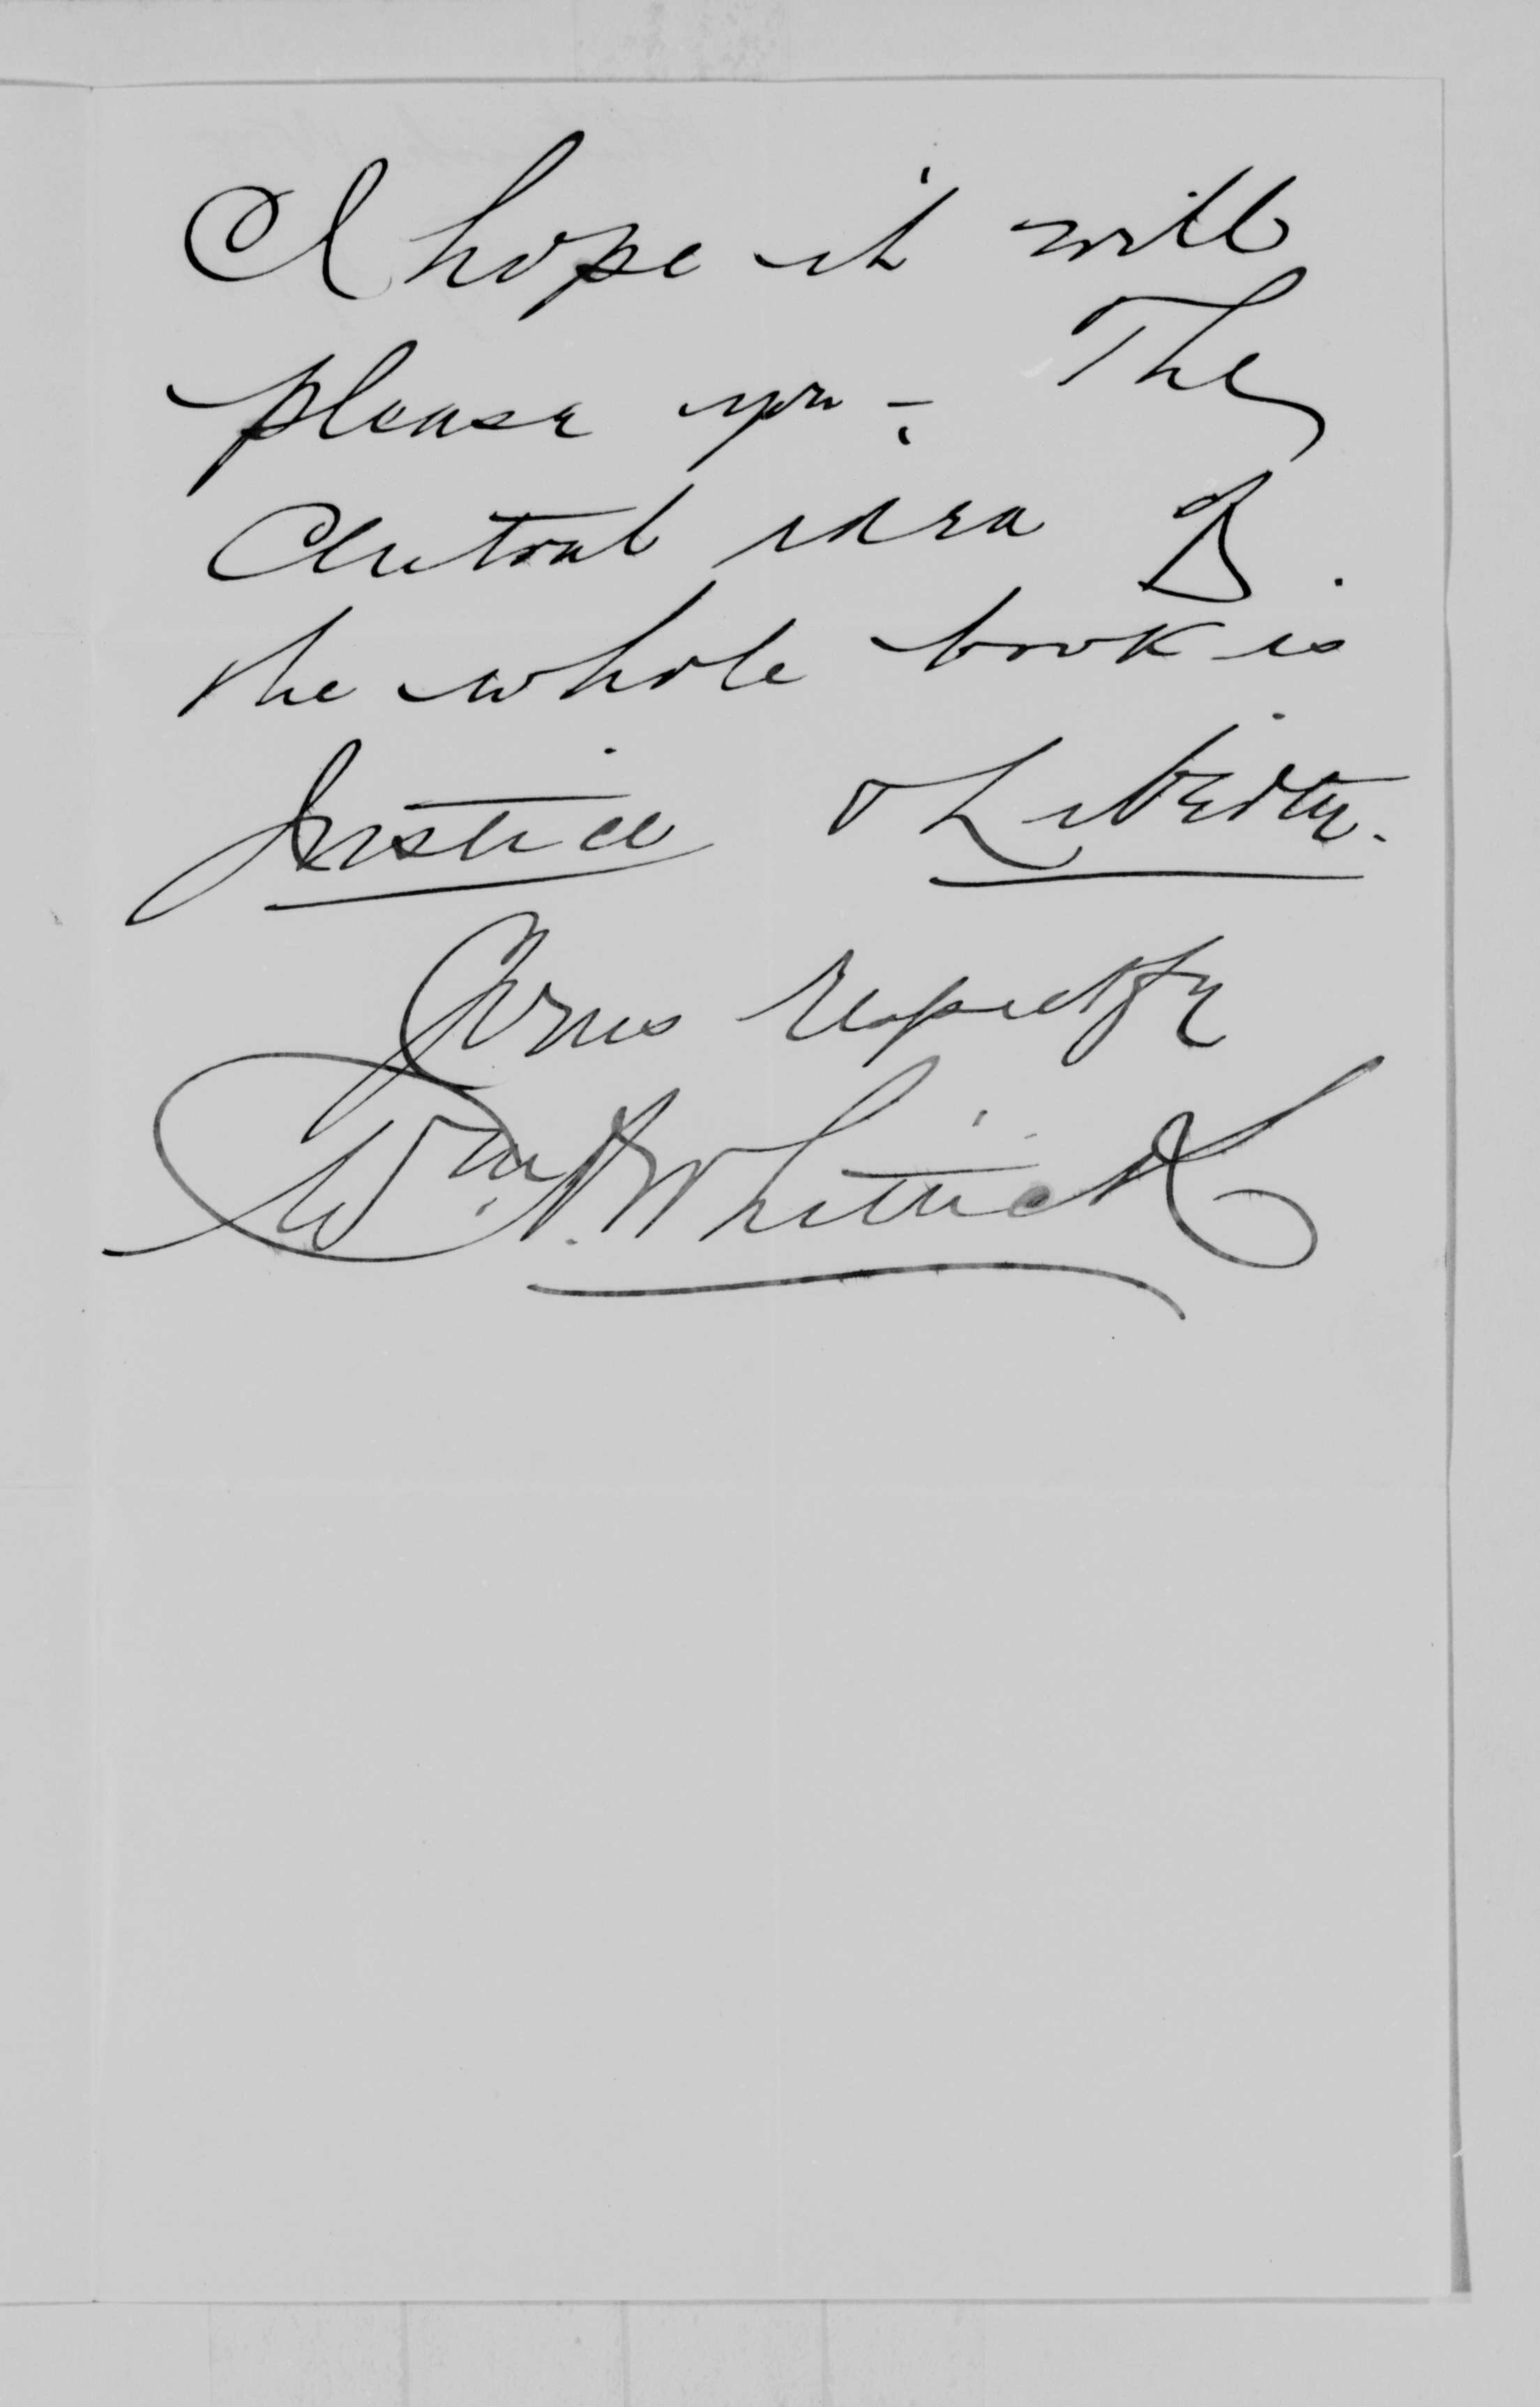 I hope it will
please you – The
Central idea of
the whole book is
Justice & Liberty.
Yours respectfy
Wm. A. Whittick